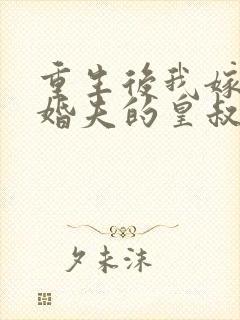 重生後我嫁
婚夫的皇叔
夕未沫